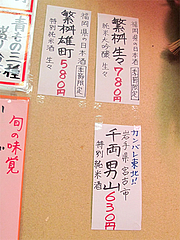 福岡県の日本酒
季節限定
繁桝 生々 780円
純米大吟醸 生々
福岡県の日本酒
季節限定
繁桝 雄町 580円
特別純米酒 生々
ガンバレ東北!!
岩手県宮古市
千両男山 630円
特別純米酒
旬の味覚